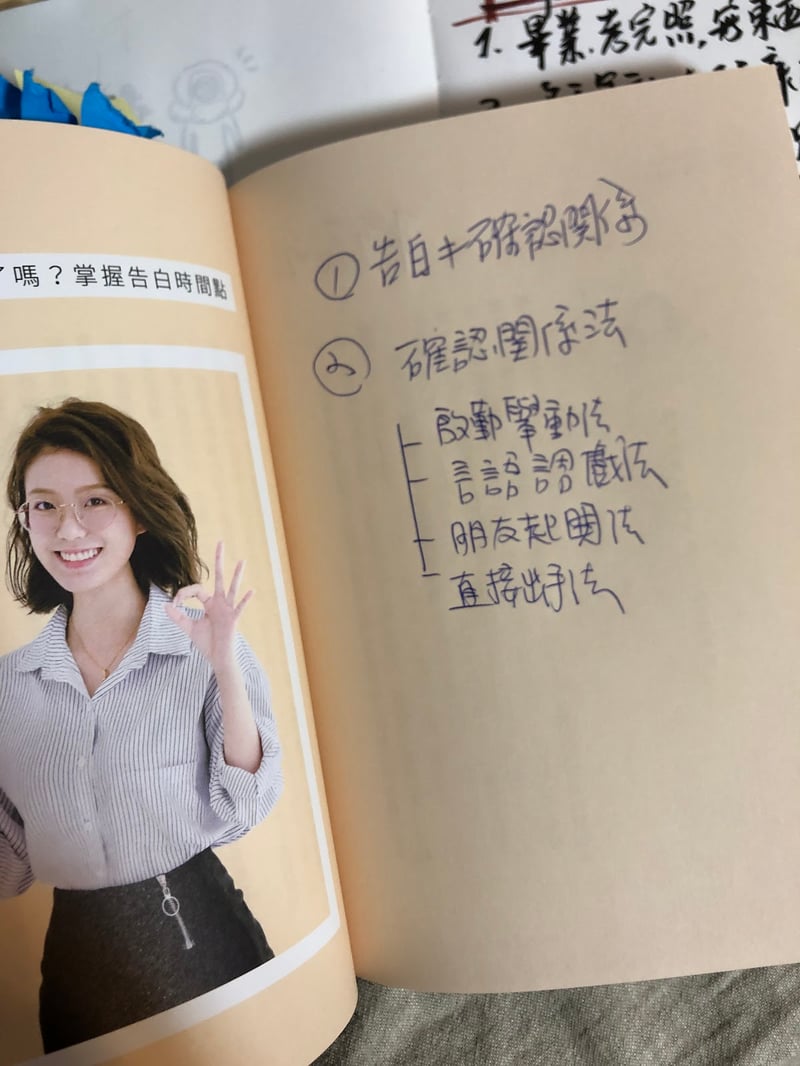 1. 畢業.考完照,
嗎？掌握告白時間點
① 告白≠確認關係
② 確認關係法
殷勤舉動法
言語調戲法
朋友起鬨法
直接出手法